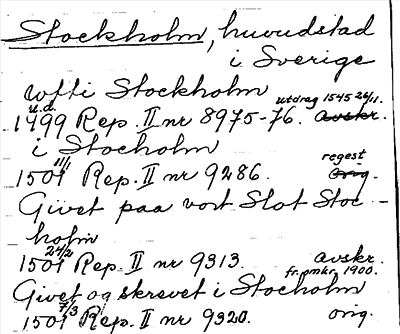 Stockholm, huvudstad
i Sverige
wtti Stockholm
u.d. utdrag 1545 26/11.
1499 Rep. II nr 8975-76. avskr.
i Stocholm
11/1 regest
1501 Rep. II nr 9286. orig.
Givet paa vort Slot Stoc-
holm
24/2
1501 Rep. II nr 9313. avskr.
fr. omkr. 1900.
Givet og skrevet i Stocholm
7/3
1501 Rep. II nr 9320. orig.